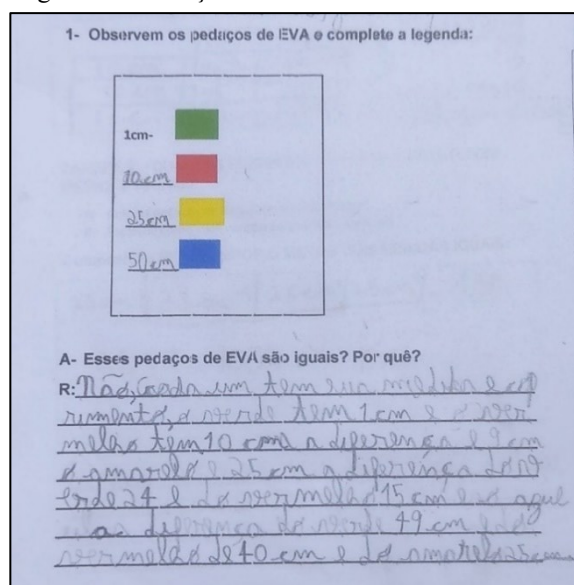 1- Observem os pedaços de EVA e complete a legenda:
1cm-
10cm
25cm
50cm
A- Esses pedaços de EVA são iguais? Por quê?
R: Não, cada um tem sua medida e cop
rimento, o verde tem 1 cm e o ver
melao tem 10 cm a diferença é 9 cm
o amarelo é 25 cm a diferença do v
erde 24 e do vermelao 15 cm e o azul
a diferença do verde 49 cm e do
vermelao de 40 cm e do amarelo 25 cm